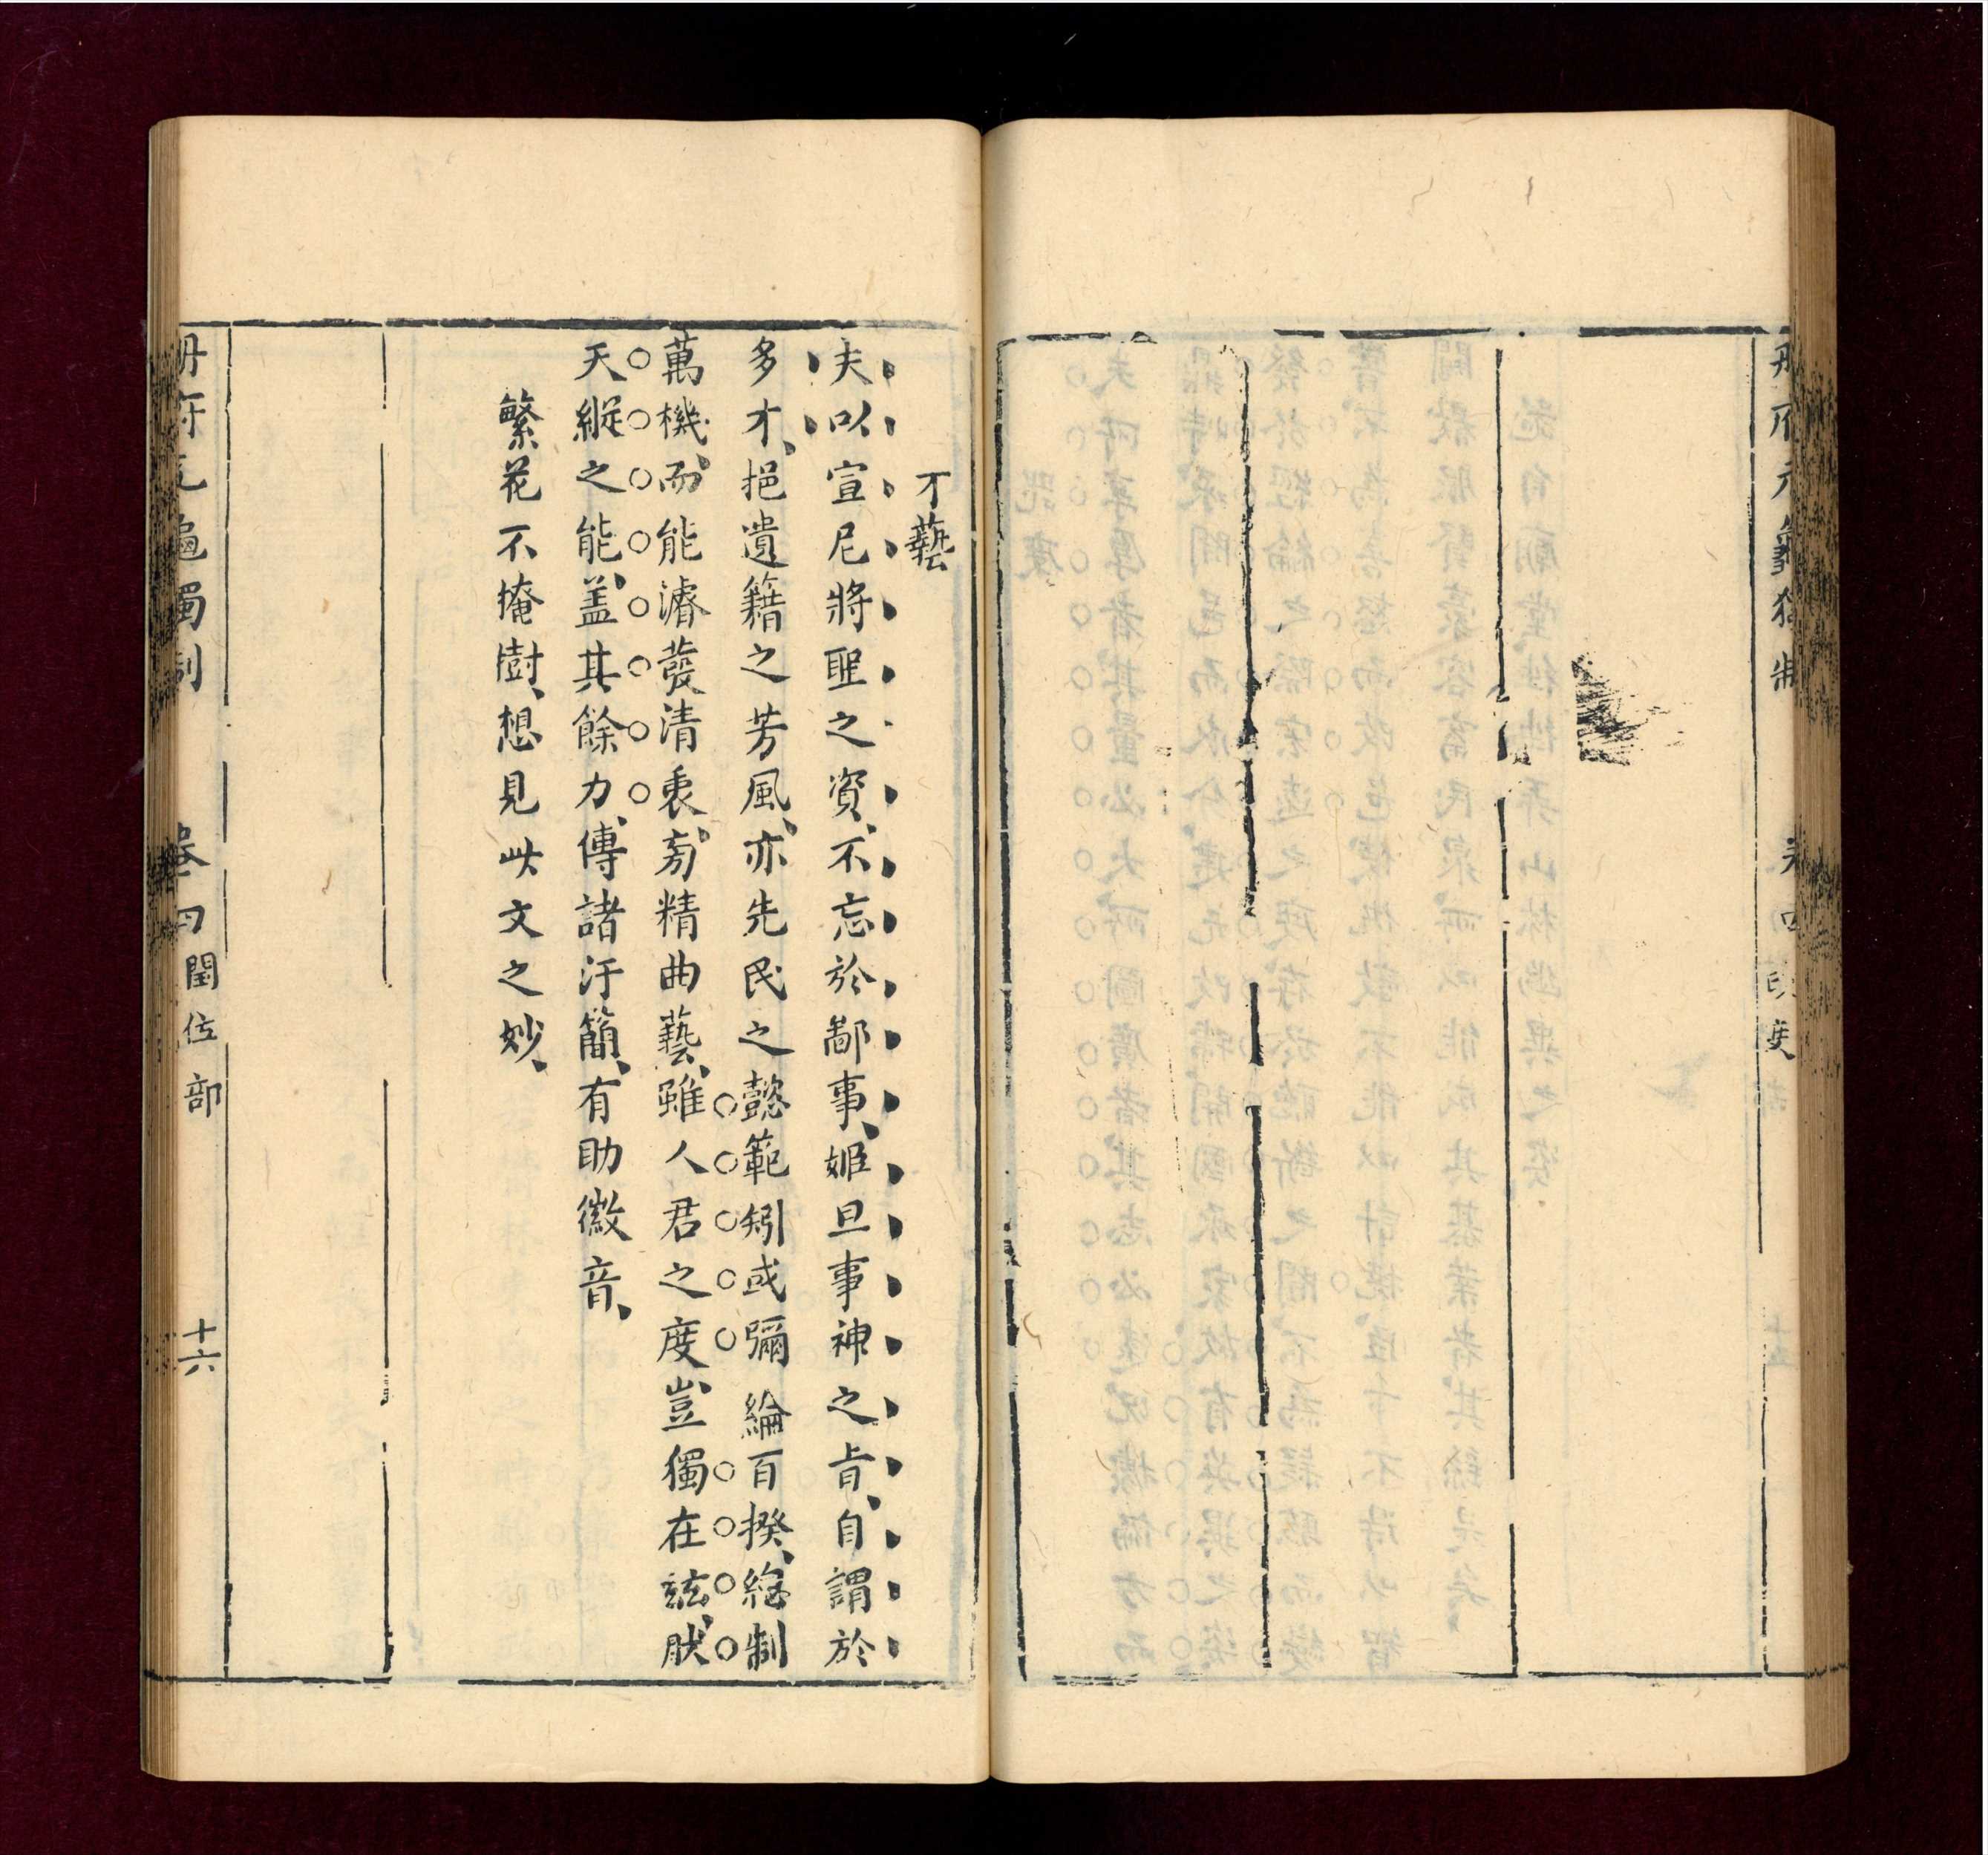 册府元龜獨制
卷四 閏位部
才藝
夫以宣尼將聖之資、不忘於鄙事、姬旦事神之旨、自謂於
多才、挹遺籍之芳風、亦先民之懿範、矧或彌綸百揆、總制
萬機、而能濬發清衷、旁精曲藝、雖人君之度、豈獨在兹、肰
天縱之能、盖其餘力、傳諸汗簡、有助徽音、
繁花不掩樹、想見此文之妙、
册府元龜獨制
卷四閏位部
十六